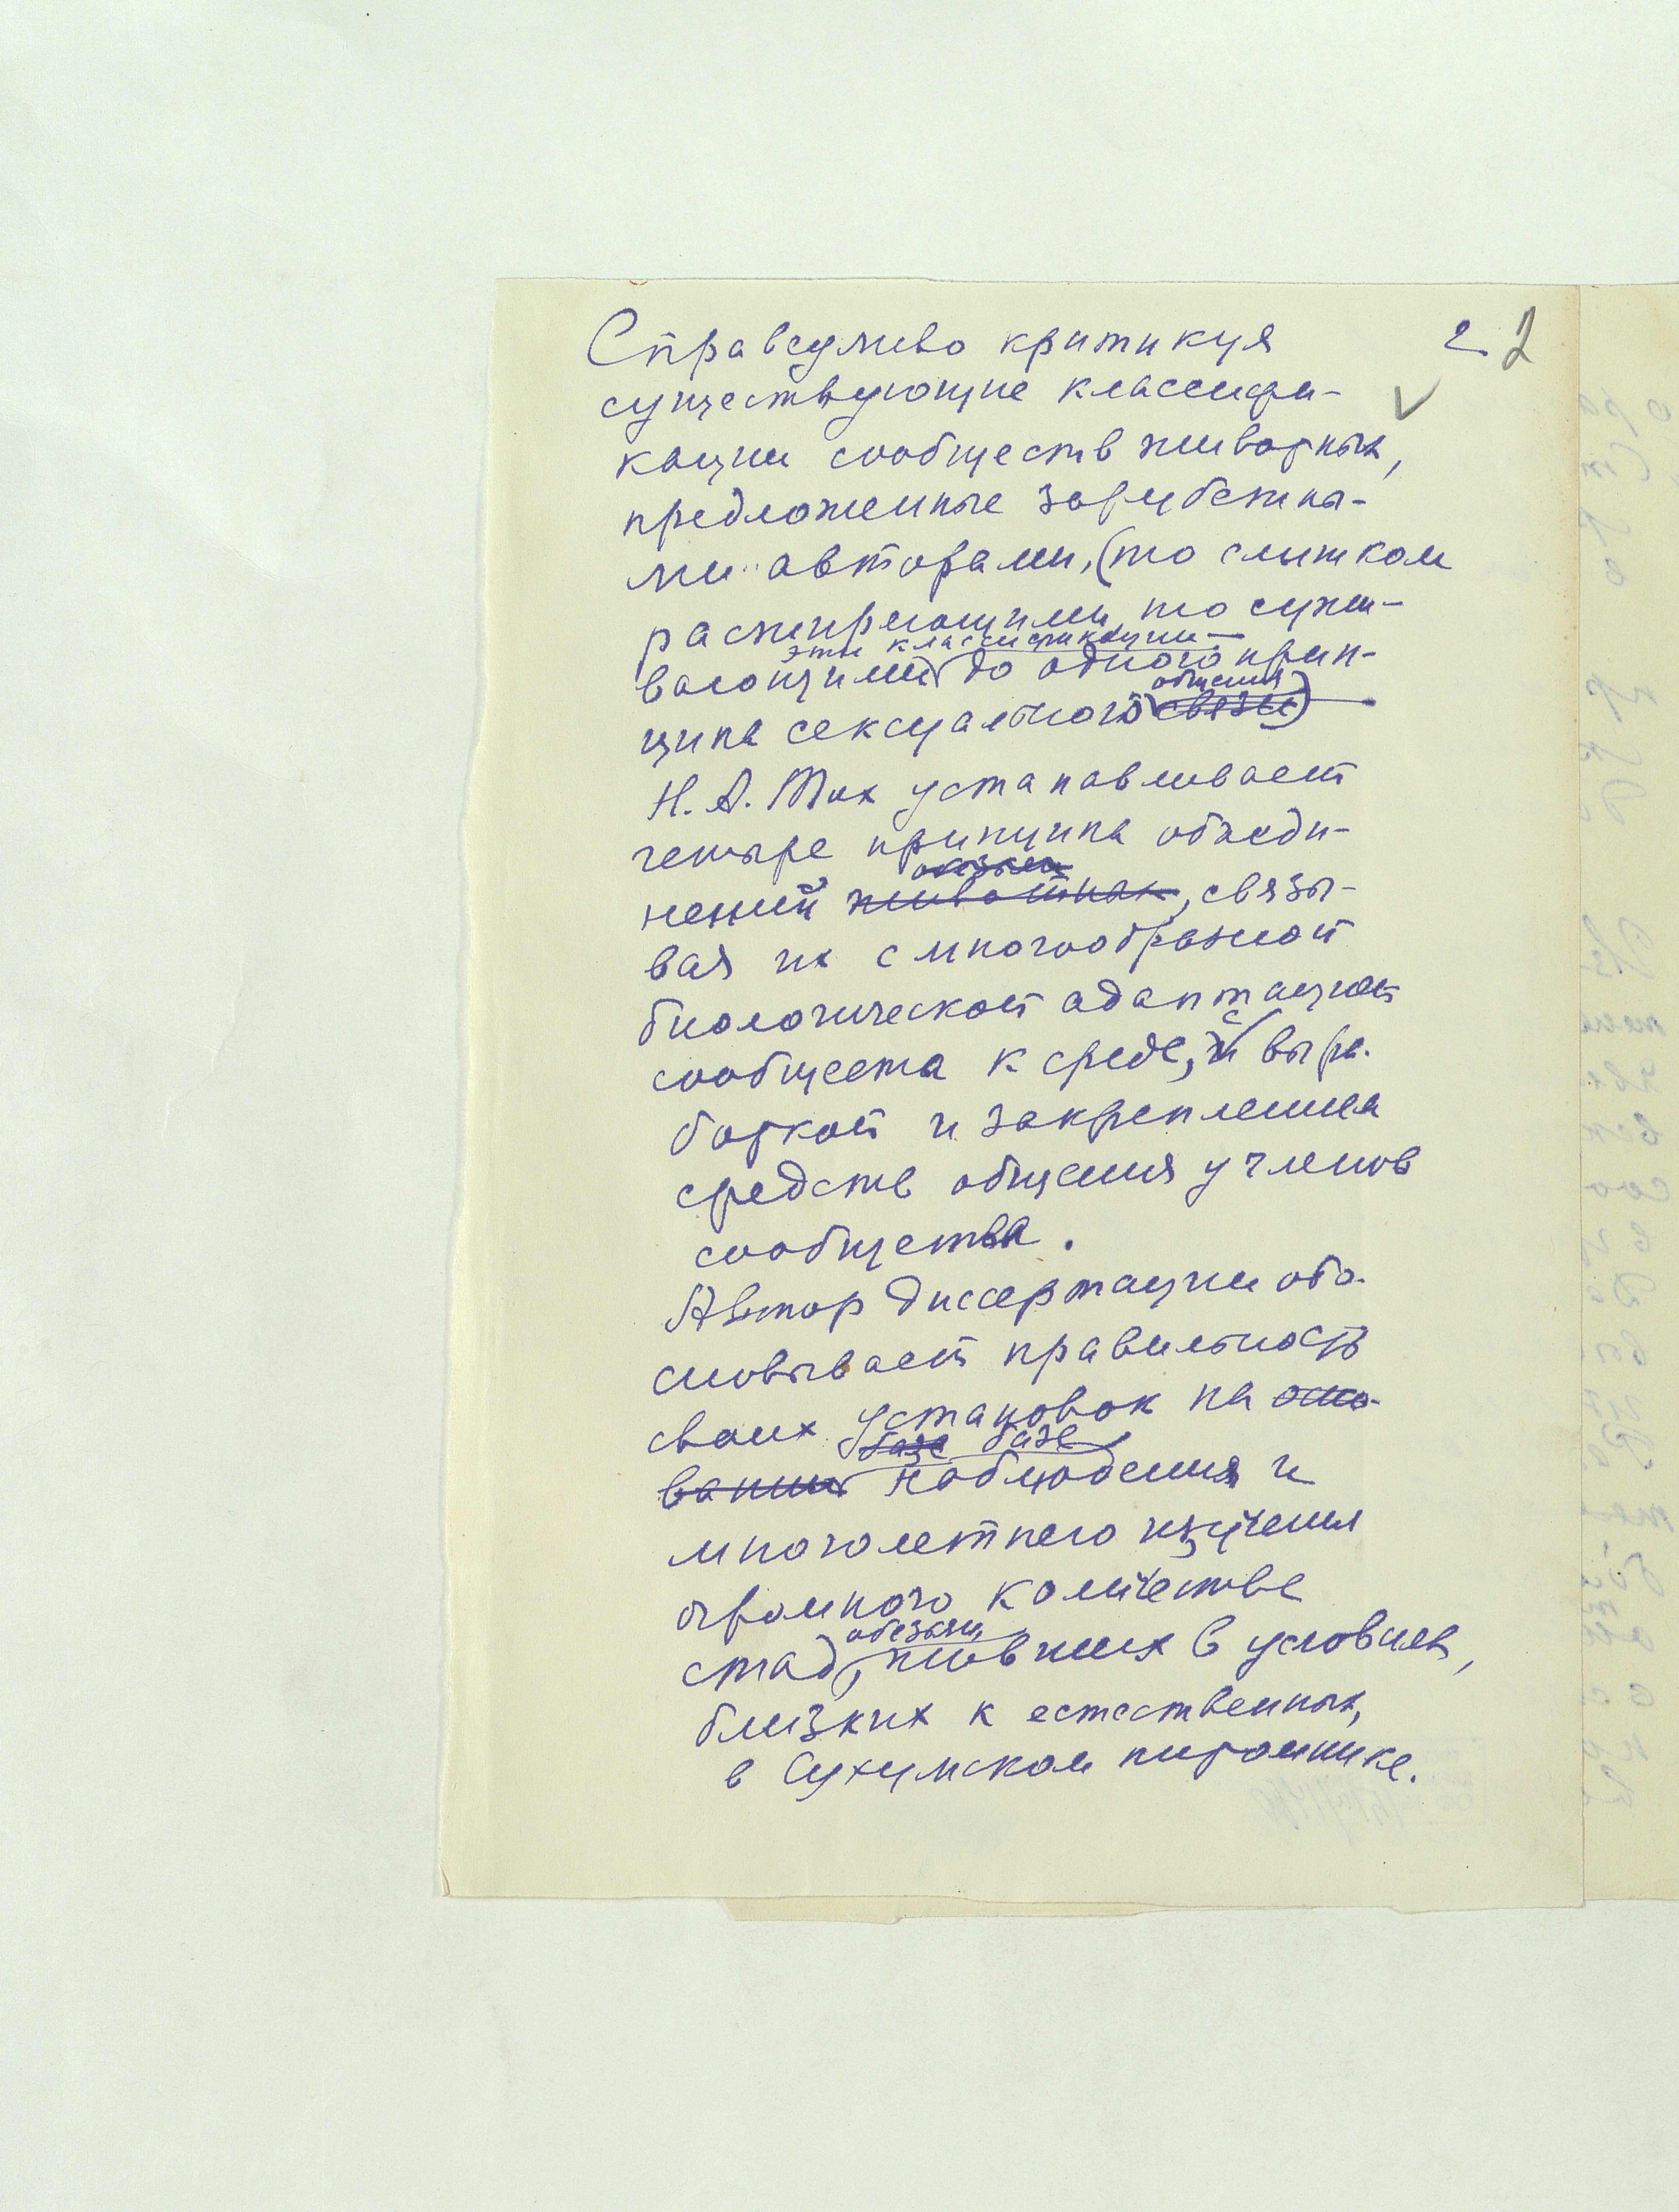 Справедливо критикуя
2. 2
существующие классифи-
кации сообществ животных,
предложенные зарубежны-
ми авторами, (то слишком
расширяющими, то сужи-
эти классификации
вающими до одного прин-
общения
ципа сексуального связи)
Н. А. Тих устанавливает
четыре принципа объеди-
обезьян
нений животных, связы-
вая их с многообразной
биологической адаптацией
с
сообщества к среде, и выра-
боткой и закрепления
средств общения у членов
сообщества.
Автор диссертации обо-
сновывает правильность
своих установок на осно-
базе базе
вании наблюдения и
многолетнего изучения
огромного количества
обезьян
стад, живших в условиях,
близких к естественным,
в Сухумском питомнике.